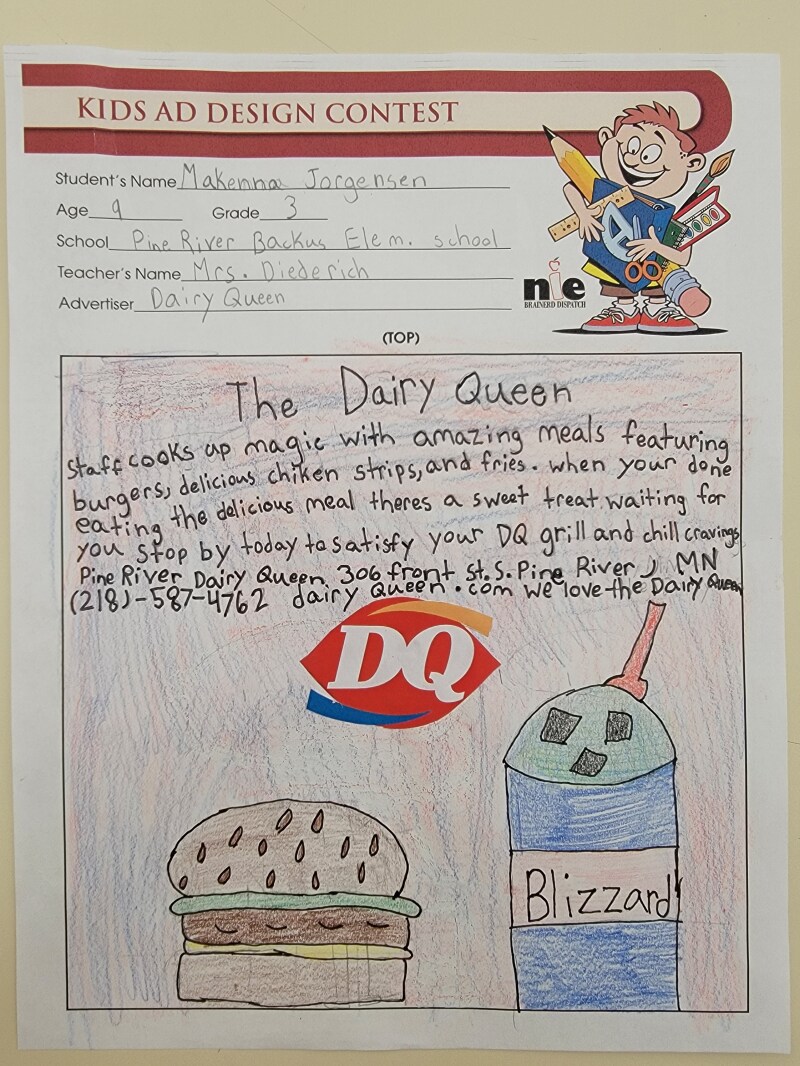 KIDS AD DESIGN CONTEST
Student's Name Makenna Jorgensen
Age 9 Grade 3
School Pine River Backus Elem. school
Teacher's Name Mrs. Diederich
Advertiser Dairy Queen
nie
BRAINERD DISPATCH
(TOP)
The Dairy Queen
Staff cooks up magic with amazing meals featuring
burgers, delicious chiken strips, and fries. when your done
eating the delicious meal theres a sweet treat waiting for
you stop by today to satisfy your DQ grill and chill cravings
Pine River Dairy Queen 306 front st. S. Pine River, MN
(218)-587-4762 dairy Queen.com we love the Dairy Queen
DQ
Blizzard